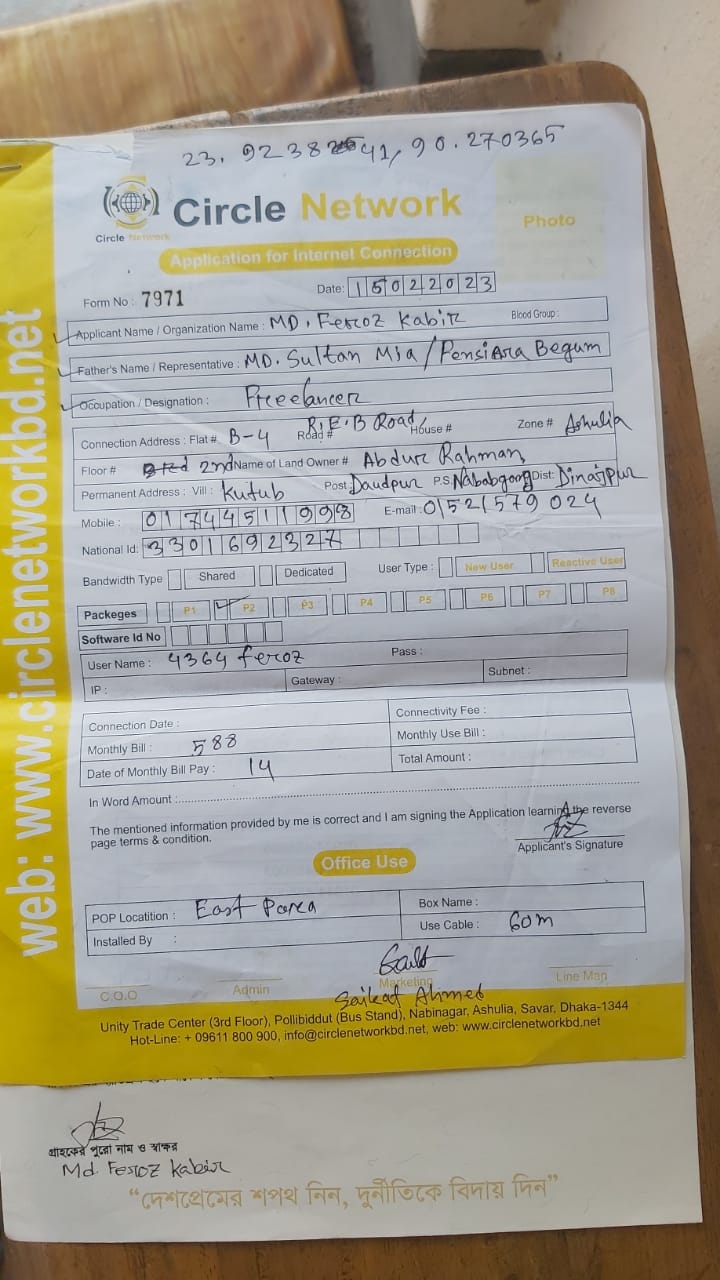 23. 9238 41, 90.270365
Circle Network
Circle Network
Photo
Application for Internet Connection
Form No : 7971
Date: 15022023
Applicant Name / Organization Name : MD. Feroz Kabir Blood Group :
Father's Name / Representative : MD. Sultan Mia / Pensi Ara Begum
Occupation / Designation : Freelancer
Connection Address : Flat # B-4 Road # R.E.B Road, House # Zone # Ashulia
Floor # 2nd Name of Land Owner # Abdur Rahman
Permanent Address : Vill : Kutub Post Daudpur P.S. Nababgong Dist: Dinajpur
Mobile : 01744511998 E-mail : 01521579024
National Id: 3301692327
Bandwidth Type Shared Dedicated User Type : New User Reactive User
Packeges P1 P2 P3 P4 P5 P6 P7 P8
Software Id No
User Name : 4364 feroz Pass :
IP : Gateway : Subnet :
Connection Date : Connectivity Fee :
Monthly Bill : 588 Monthly Use Bill :
Date of Monthly Bill Pay : 14 Total Amount :
In Word Amount :
The mentioned information provided by me is correct and I am signing the Application learning the reverse
page terms & condition.
Applicant's Signature
Office Use
POP Locatition : East Parea Box Name :
Installed By : Use Cable : 60m
C.O.O Admin Marketing Line Map
Saikat Ahmed
Unity Trade Center (3rd Floor), Pollibiddut (Bus Stand), Nabinagar, Ashulia, Savar, Dhaka-1344
Hot-Line: + 09611 800 900, info@circlenetworkbd.net, web: www.circlenetworkbd.net
web: www.circlenetworkbd.net
গ্রাহকের পুরো নাম ও স্বাক্ষর
Md. Feroz Kabir
“দেশপ্রেমের শপথ নিন, দুর্নীতিকে বিদায় দিন”